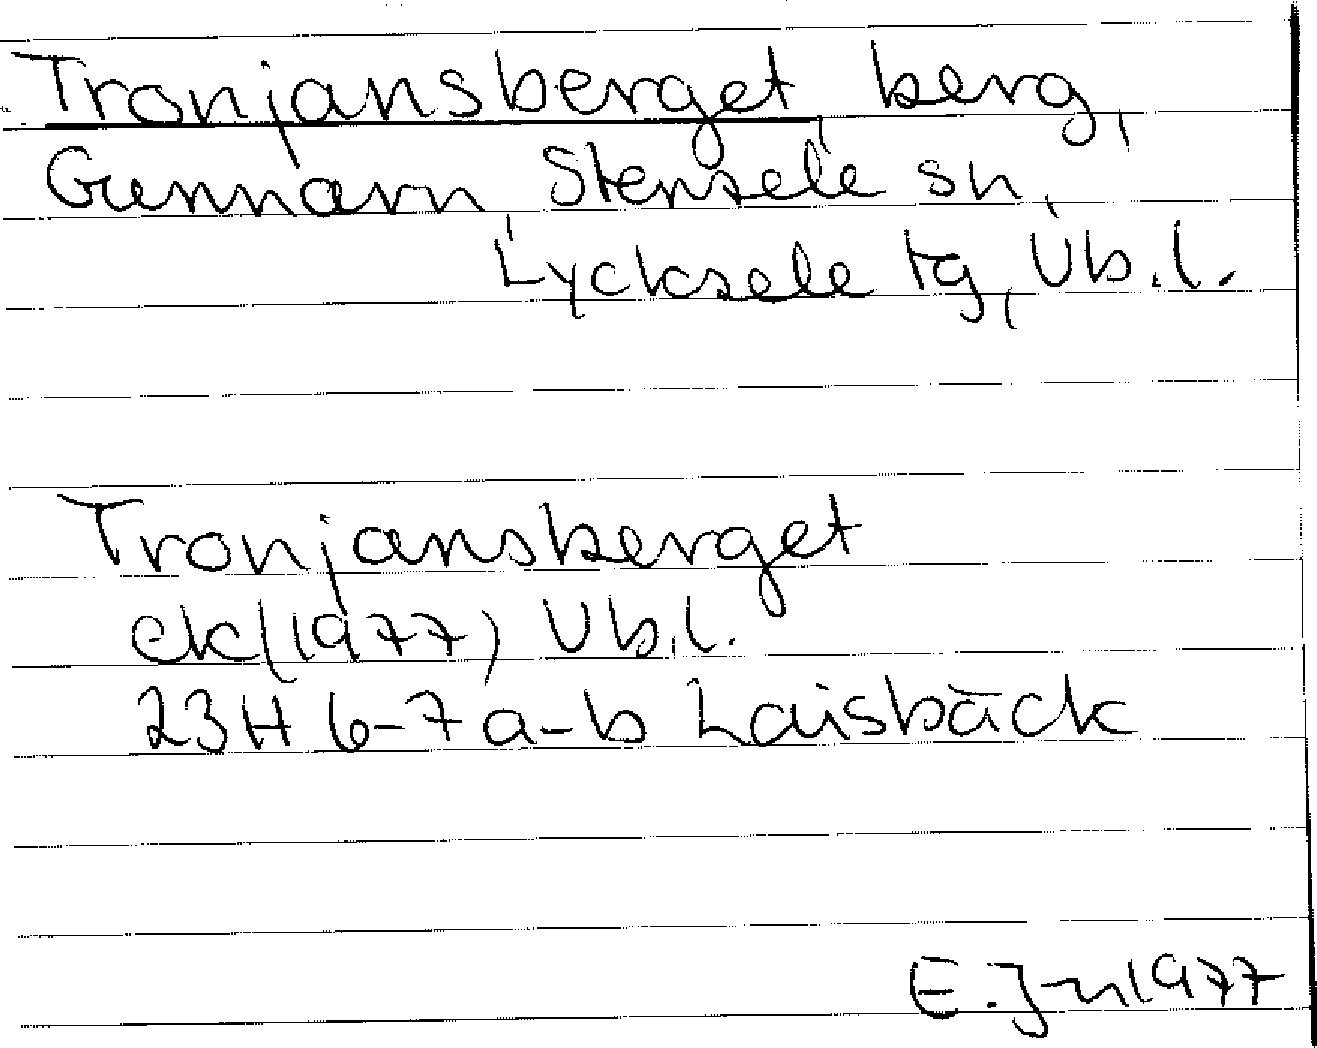 Tronjansberget, berg,
Gunnarn, Stensele sn,
Lycksele tg, Vb.l.
Tronjansberget
ek (1977) Vb.l.
23H 6-7 a-b Laisbäck
E. J-n 1977